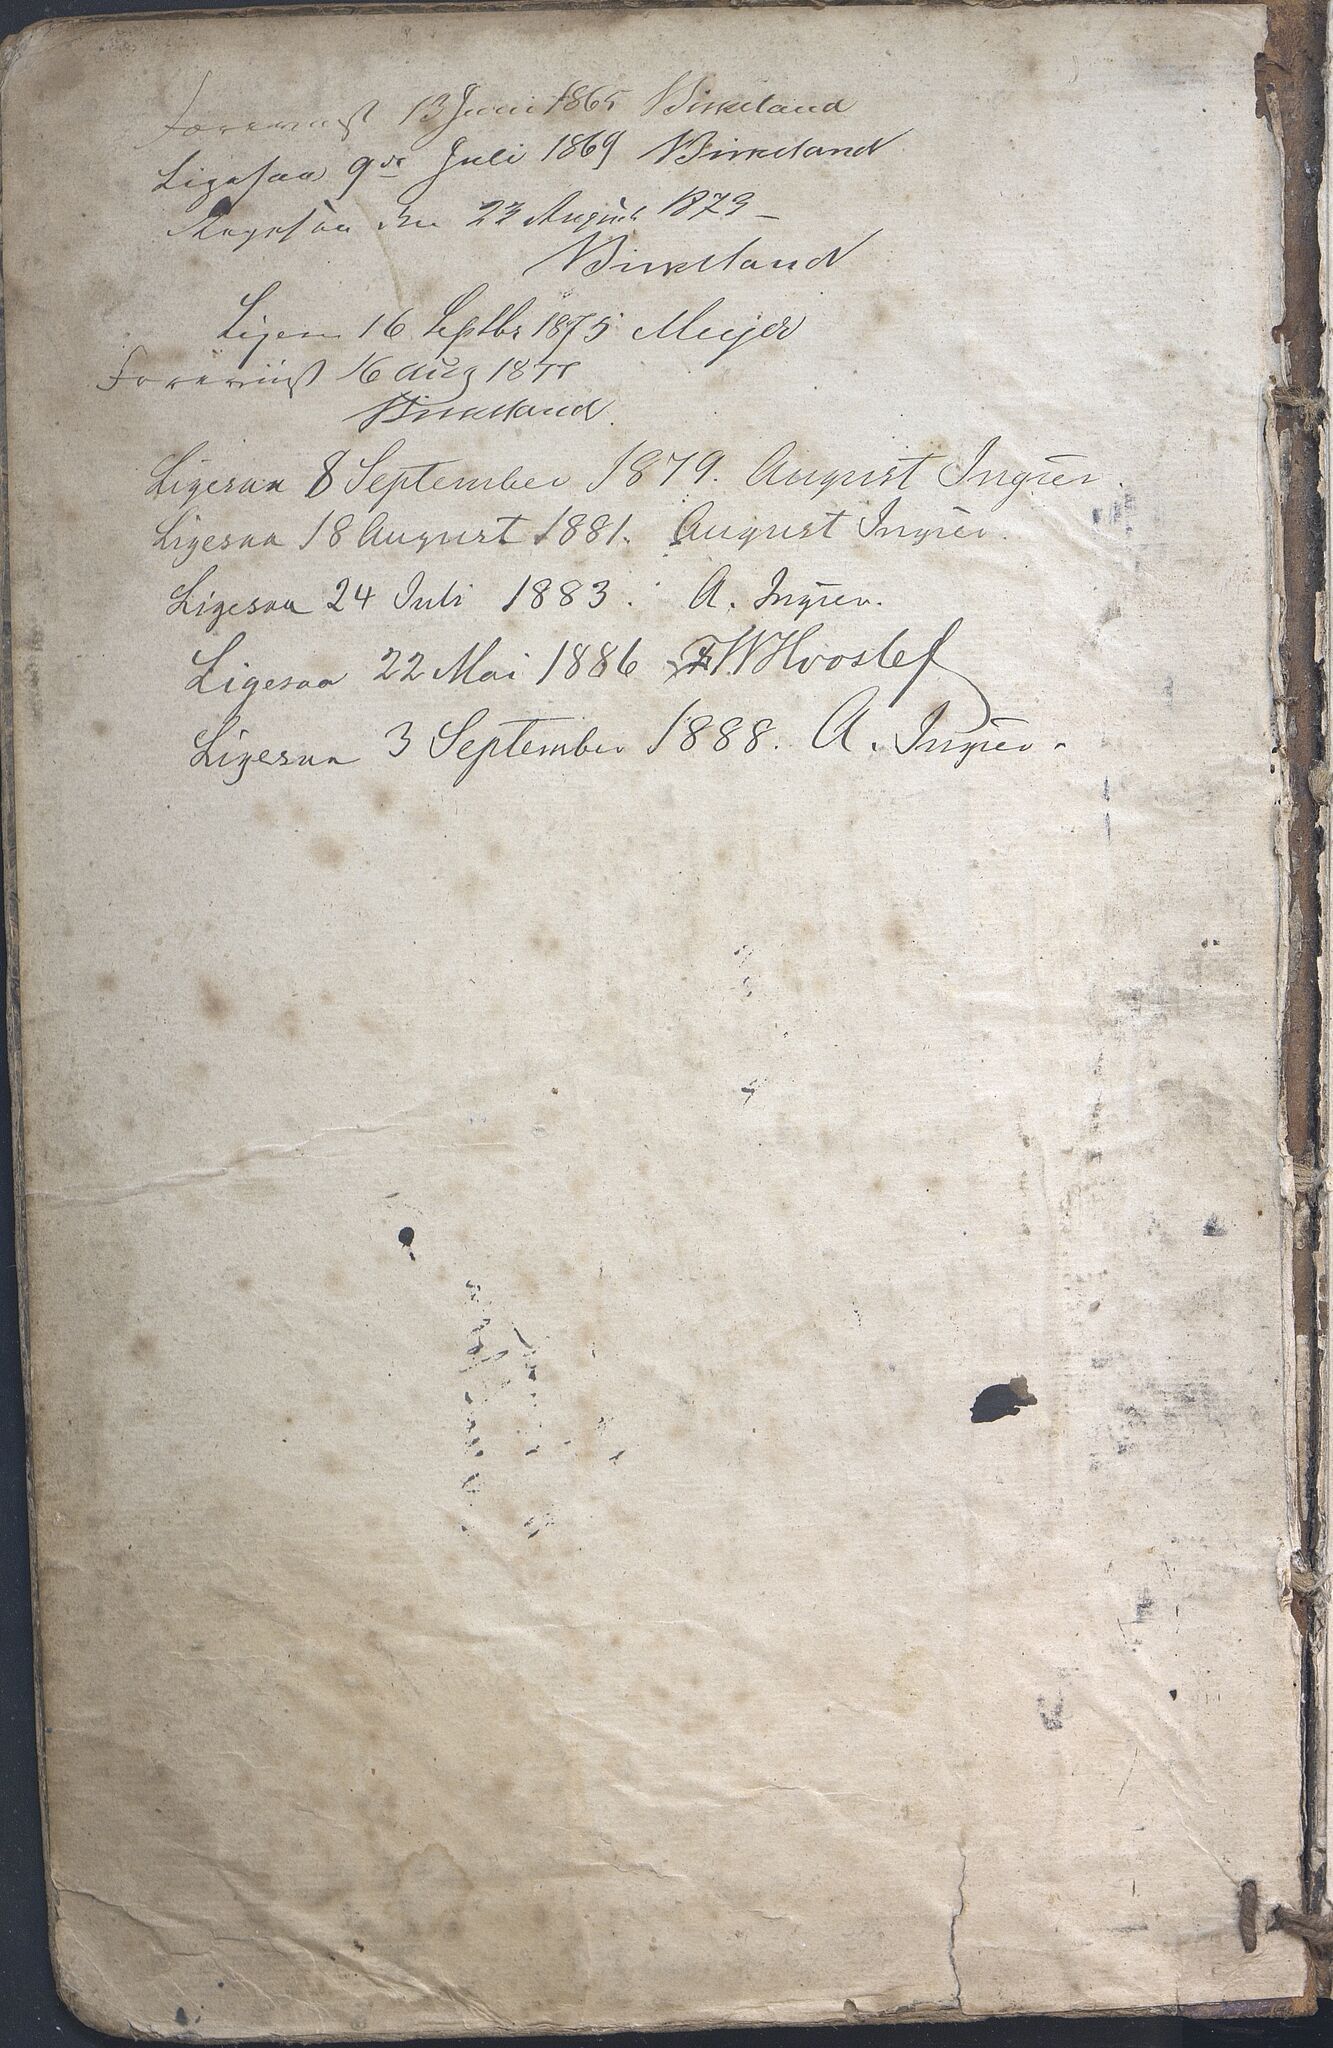 Foreviist 13 Juni 1865 Birkeland
Ligesaa 9de Juli 1869 Birkeland
Ligesaa den 23 August 1873
Birkeland
Ligesaa 16 Septbr 1875 Meijer
Foreviist 16 Aug 1877
Birkeland
Ligesaa 8 September 1879. August Ingier.
Ligesaa 18 August 1881. August Ingier.
Ligesaa 24 Juli 1883. A. Ingier.
Ligesaa 22 Mai 1886 FW Hvoslef
Ligesaa 3 September 1888. A. Ingier.